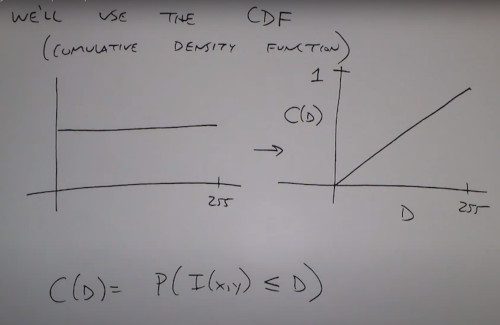 WE'LL USE THE CDF
(CUMULATIVE DENSITY FUNCTION)
1
C(D)
255
D
255
C(D) = P(I(x,y) ≤ D)